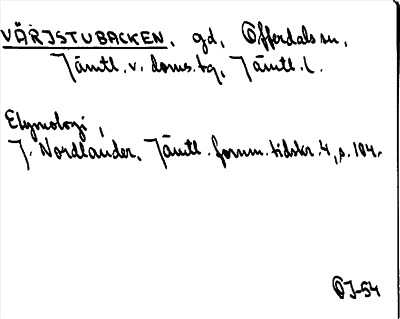 VÄRJSTUBACKEN, gd, Offerdals sn,
Jämtl. v. doms.hg, Jämtl. l.
Etymologi,
J. Nordlander, Jämtl. fornm. tidskr. 4, s. 104.
OJ-54